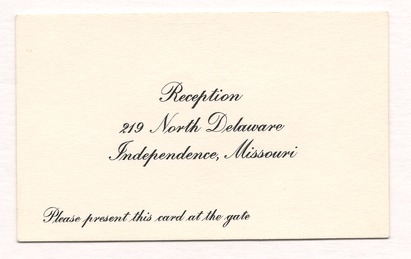 Reception
219 North Delaware
Independence, Missouri
Please present this card at the gate